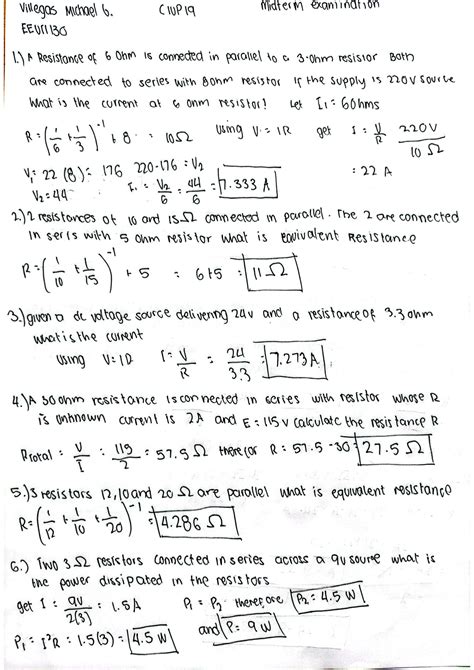 Villegas Michael G. CIUP19 Midterm Examination
EEUI130
1.) A Resistance of 6 Ohm is connected in parallel to a 3-ohm resistor Both
are connected to series with 8 ohm resistor if the supply is 220V source
What is the current at 6 ohm resistor? Let I₁ = 6 Ohms
R = (1/6 + 1/3)⁻¹ + 8 = 10Ω using V = IR get I = V/R 220V/10Ω
V₁ = 22 (8) = 176 220-176 = V₂ = 22 A
V₂ = 44 I₁ = V₂/6 = 44/6 = 7.333 A
2.) 2 resistances of 10 and 15Ω connected in parallel. The 2 are connected
in seris with 5 ohm resistor what is Equivalent Resistance
R = (1/10 + 1/15)⁻¹ + 5 = 6+5 = 11 Ω
3.) given a dc voltage source delivering 24v and a resistance of 3.3 ohm
what is the current
using V = IR I = V/R = 24/3.3 = 7.273 A
4.) A 30 ohm resistance is connected in series with resistor whose R
is unknown current is 2A and E = 115V calculate the resistance R
Rtotal = V/I = 115/2 = 57.5 Ω therefor R = 57.5 - 30 = 27.5 Ω
5.) 3 resistors 12, 10 and 20 Ω are parallel what is equivalent resistance
R = (1/12 + 1/10 + 1/20)⁻¹ = 4.286 Ω
6.) Two 3Ω resistors connected in series across a 9v sourse what is
the power dissipated in the resistors
get I = 9V/2(3) = 1.5A P₁ = P₂ therefore P₂ = 4.5 W
P₁ = I²R = 1.5(3) = 4.5 W and P = 9 W